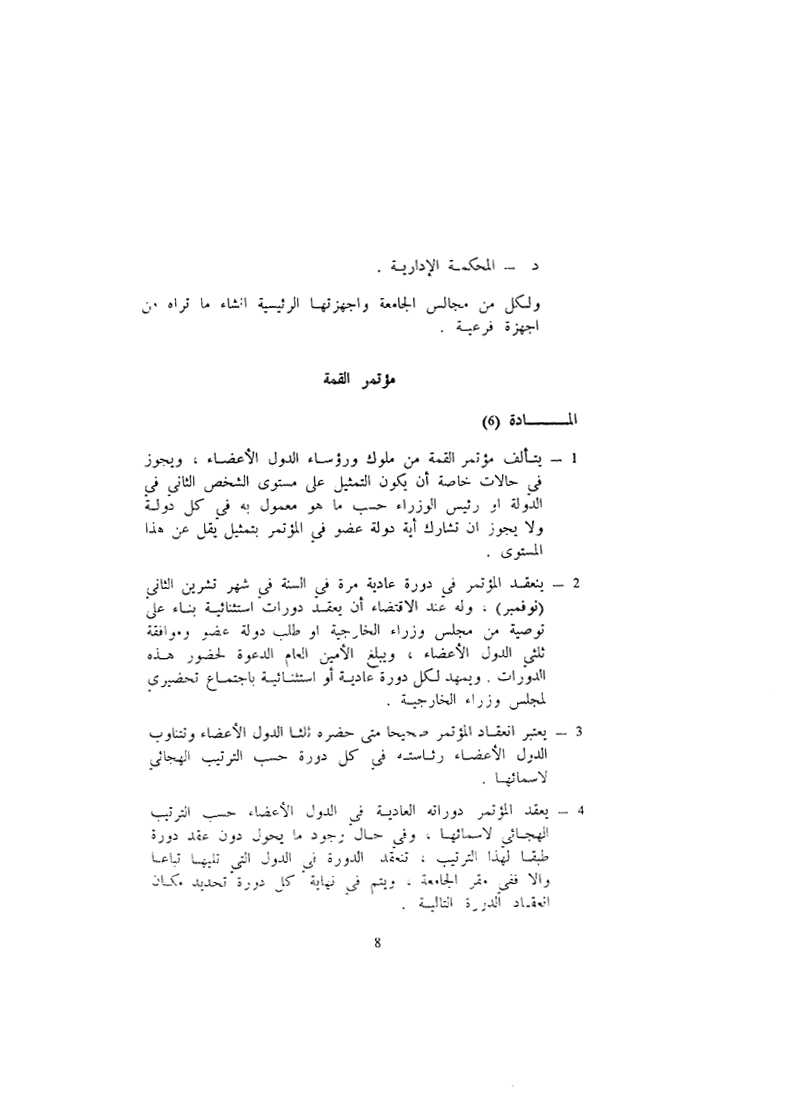 د — المحكمة الإدارية .
ولكل من مجالس الجامعة واجهزتها الرئيسية انشاء ما تراه من
اجهزة فرعية .
مؤتمر القمة
المـــــادة (6)
1 — يتألف مؤتمر القمة من ملوك ورؤساء الدول الأعضاء ، ويجوز
في حالات خاصة أن يكون التمثيل على مستوى الشخص الثاني في
الدولة او رئيس الوزراء حسب ما هو معمول به في كل دولة
ولا يجوز ان تشارك أية دولة عضو في المؤتمر بتمثيل يقل عن هذا
المستوى .
2 — ينعقد المؤتمر في دورة عادية مرة في السنة في شهر تشرين الثاني
(نوفمبر) ، وله عند الاقتضاء أن يعقد دورات استثنائية بناء على
توصية من مجلس وزراء الخارجية او طلب دولة عضو وموافقة
ثلثي الدول الأعضاء ، ويبلغ الأمين العام الدعوة لحضور هذه
الدورات . ويمهد لكل دورة عادية أو استثنائية باجتماع تحضيري
لمجلس وزراء الخارجية .
3 — يعتبر انعقاد المؤتمر صحيحا متى حضره ثلثا الدول الأعضاء وتتناوب
الدول الأعضاء رئاسته في كل دورة حسب الترتيب الهجائي
لاسمائها .
4 — يعقد المؤتمر دوراته العادية في الدول الأعضاء حسب الترتيب
الهجائي لاسمائها ، وفي حال وجود ما يحول دون عقد دورة
طبقا لهذا الترتيب ، تنعقد الدورة في الدول التي تليها تباعا
والا ففي مقر الجامعة ، ويتم في نهاية كل دورة تحديد مكان
انعقاد الدورة التالية .
8